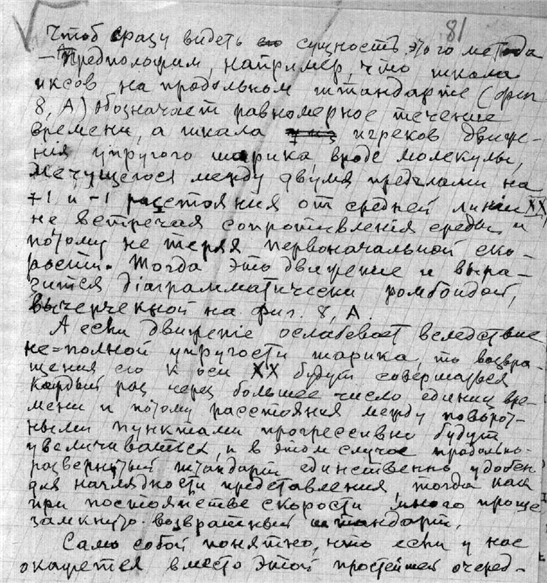 81
Чтоб сразу видеть сущность этого метода
— Предположим, например, что шкала
иксов на продольном штандарте (фиг
8, А) обозначает равномерное течение
времени, а шкала игреков движе-
ния упругого шарика, вроде молекулы,
мечущегося между двумя пределами на
+1 и -1 расстояния от средней линии XX
не встречая сопротивления среды и
потому не теряя первоначальной ско-
рости. Тогда это движение и выра-
зится діаграмматически ромбоидой,
вычерченной на фиг. 8, А.
А если движение ослабевает вследствие
не-полной упругости шарика, то возвра-
щения его к оси XX будут совершаться
каждый раз через большее число единиц вре-
мени и потому расстояния между поворот-
ными пунктами прогрессивно будут
увеличиваться, и в этом случае продольно-
развернутый штандарт единственно удобен
для наглядности представления, тогда как
при постоянстве скорости много проще
замкнуто-возвратный штандарт.
Само собой понятно, что если у нас
окажется вместо этой простейшей очеред-